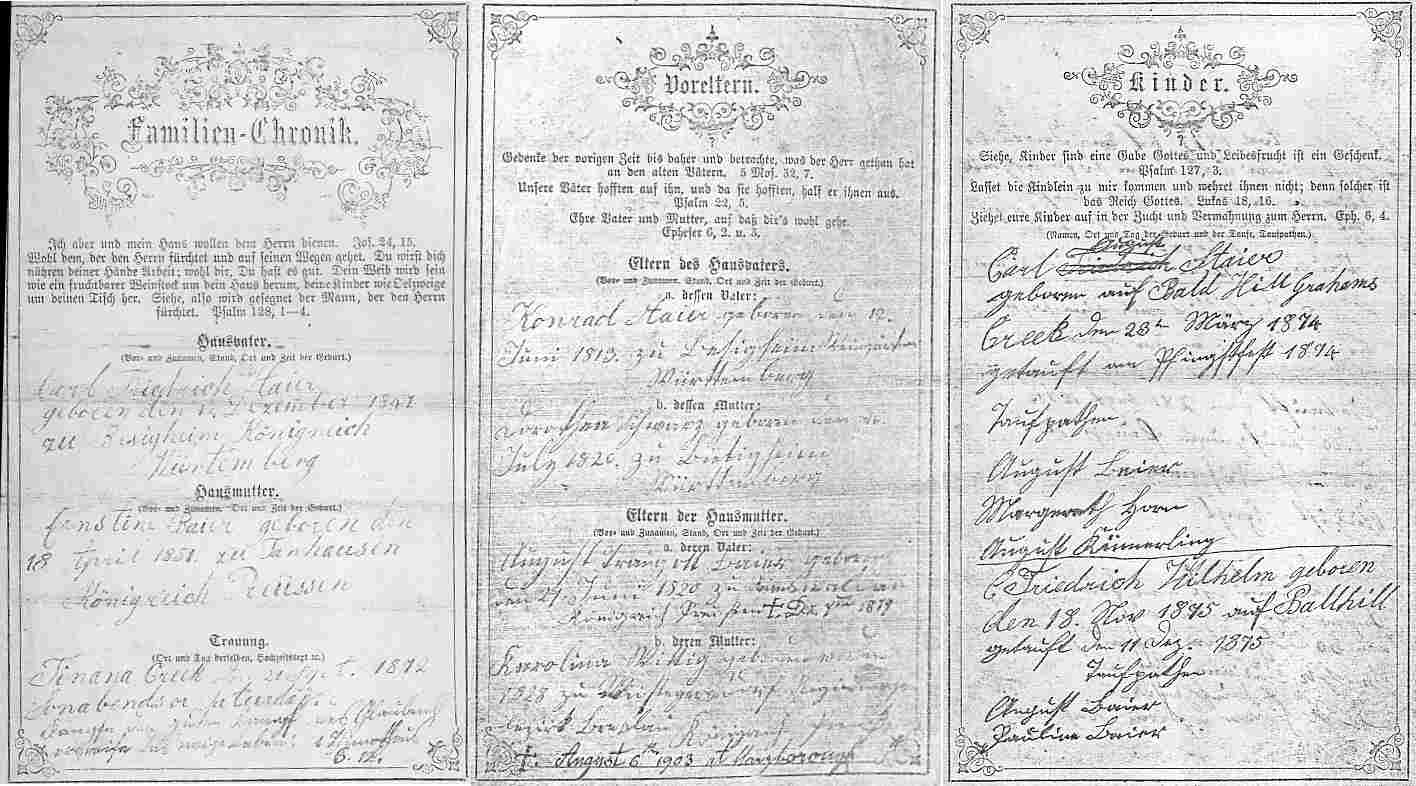 Familien-Chronik.
Ich aber und mein Haus wollen dem Herrn dienen. Jos. 24, 15.
Wohl dem, der den Herrn fürchtet und auf seinen Wegen gehet. Du wirst dich
nähren deiner Hände Arbeit; wohl dir, Du hast es gut. Dein Weib wird sein
wie ein fruchtbarer Weinstock um dein Haus herum, deine Kinder wie Oelzweige
um deinen Tisch her. Siehe, also wird gesegnet der Mann, der den Herrn
fürchtet. Psalm 128, 1—4.
Hausvater.
(Vor- und Zunamen, Stand, Ort und Zeit der Geburt.)
Carl Friedrich Stair
geboren den 12 Dezember 184
zu Besigheim Königreich
Würtemberg
Hausmutter.
(Vor- und Zunamen. Ort und Zeit der Geburt.)
geboren den
18 April 1851 zu Tanhausen
Königreich Preussen
Trauung.
(Ort und Tag derselben, Hochzeitstext ec.)
Tinana Creek 1872
Kampf des Glaubens
6. 12.
Voreltern.
Gedenke der vorigen Zeit bis daher und betrachte, was der Herr gethan hat
an den alten Vätern. 5 Mos. 32, 7.
Unsere Väter hofften auf ihn, und da sie hofften, half er ihnen aus.
Psalm 22, 5.
Ehre Vater und Mutter, auf daß dir's wohl gehe.
Epheser 6, 2. u. 3.
Eltern des Hausvaters.
(Vor- und Zunamen, Stand, Ort und Zeit der Geburt.)
a. dessen Vater:
Konrad Stair geboren den 12.
Juni 1813. zu Besigheim
Württemberg
b. dessen Mutter:
Dorothea Schwarz geboren den
July 1820. zu Bietigheim
Württemberg
Eltern der Hausmutter.
(Vor- und Zunamen, Stand, Ort und Zeit der Geburt.)
a. deren Vater:
August Baier geboren
den Juni 1820 zu
Königreich Preußen † Dez. 1879
b. deren Mutter:
Karolina Wittig geboren
1828 zu Regierungs
bezirk Breslau
† August 6th 1903 at Maryborough
Kinder.
Siehe, Kinder sind eine Gabe Gottes und Leibesfrucht ist ein Geschenk.
Psalm 127, 3.
Lasset die Kindlein zu mir kommen und wehret ihnen nicht; denn solcher ist
das Reich Gottes. Lukas 18, 16.
Ziehet eure Kinder auf in der Zucht und Vermahnung zum Herrn. Eph. 6, 4.
(Namen, Ort und Tag der Geburt und der Taufe, Taufpathen.)
August
Carl Friedrich Staier
geboren auf Bald Hill Grahams
Creek den 23ten März 1874
getauft am Pfingstfest 1874
Taufpathen
August Baier
Margereth Horn
August Kümmerling
Friedrich Wilhelm geboren
den 18. Nov 1875 auf Ballhill
getauft den 11 Dez. 1875
Taufpathen
August Baier
Pauline Baier